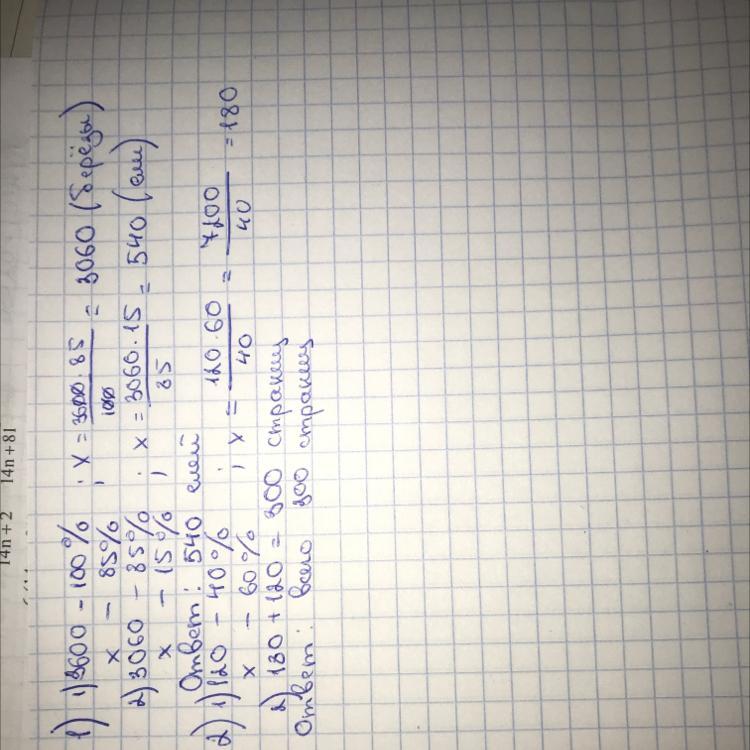 14n + 2 14n + 81
1) 1) 3600 - 100% ; x = 3600 · 85 / 100 = 3060 (берёзы)
x - 85%
2) 3060 - 85% ; x = 3060 · 15 / 85 = 540 (ели)
x - 15%
Ответ: 540 елей
2) 1) 120 - 40% ; x = 120 · 60 / 40 = 7200 / 40 = 180
x - 60%
2) 180 + 120 = 300 страниц
Ответ: всего 300 страниц